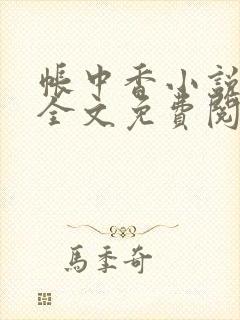 帳中香小說
全文免費閱
馬季奇